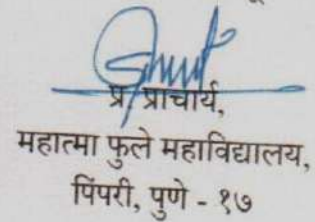 प्र. प्राचार्य,
महात्मा फुले महाविद्यालय,
पिंपरी, पुणे - १७